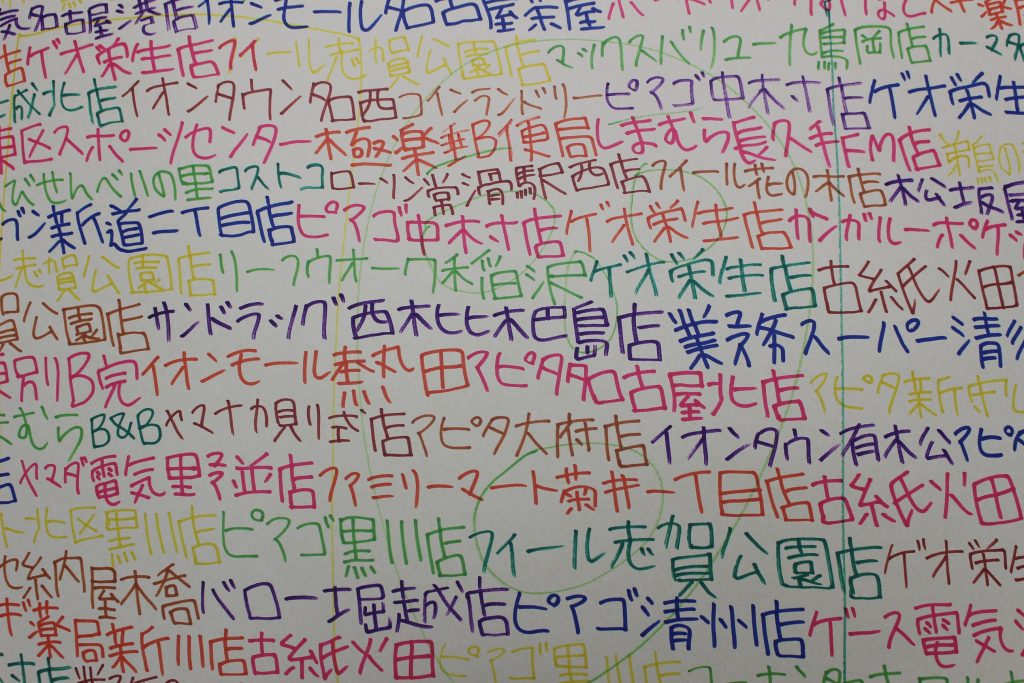 気名古屋港店イオンモール名古屋栄屋
店ゲオ栄生店フィール志賀公園店マックスバリュー九鳥岡店カーマタ
城北店イオンタウン名西コインランドリーピアゴ中木寸店ゲオ栄生
東区スポーツセンター極楽郵便局しまむら長久手FM店
えびせんべいの里コストコローソン常滑駅西店フィール花の木店松坂屋
ゴン新道二丁目店ピアゴ中木寸店ゲオ栄生店カンガルーポケッ
ル志賀公園店リーフウォーク稲沢ゲオ栄生店古紙火田
賀公園店サンドラッグ西木ヒヒ木巴島店業務スーパー清
別B完イオンモール熱田アピタ名古屋北店アピタ新守山
まむらB&Bヤマナカ則武店アピタ大府店イオンタウン有松公アピタ
店ヤマダ電気里予並店ファミリーマート菊井一丁目店古紙火田
ト北区黒川店ピアゴ黒川店フィール志賀公園店ゲオ栄生
屋木喬バロー堀越店ピアゴ清州店ゲース電気
ギ薬局新川店古紙火田ピアゴ黒川店